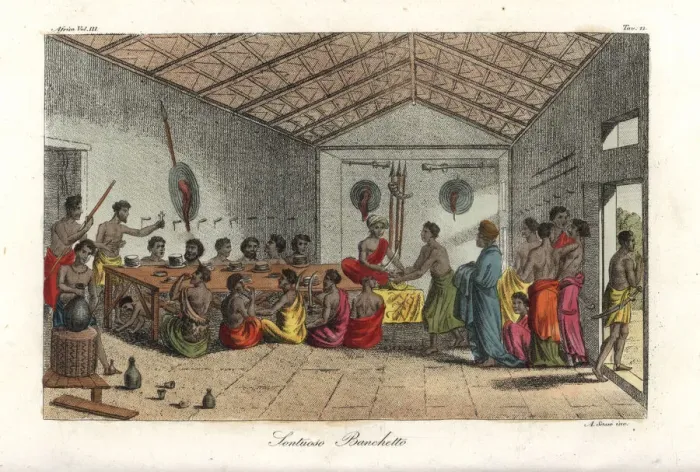 Africa Vol. III
Tav. 11.
A. Sasso inc.
Sontuoso Banchetto